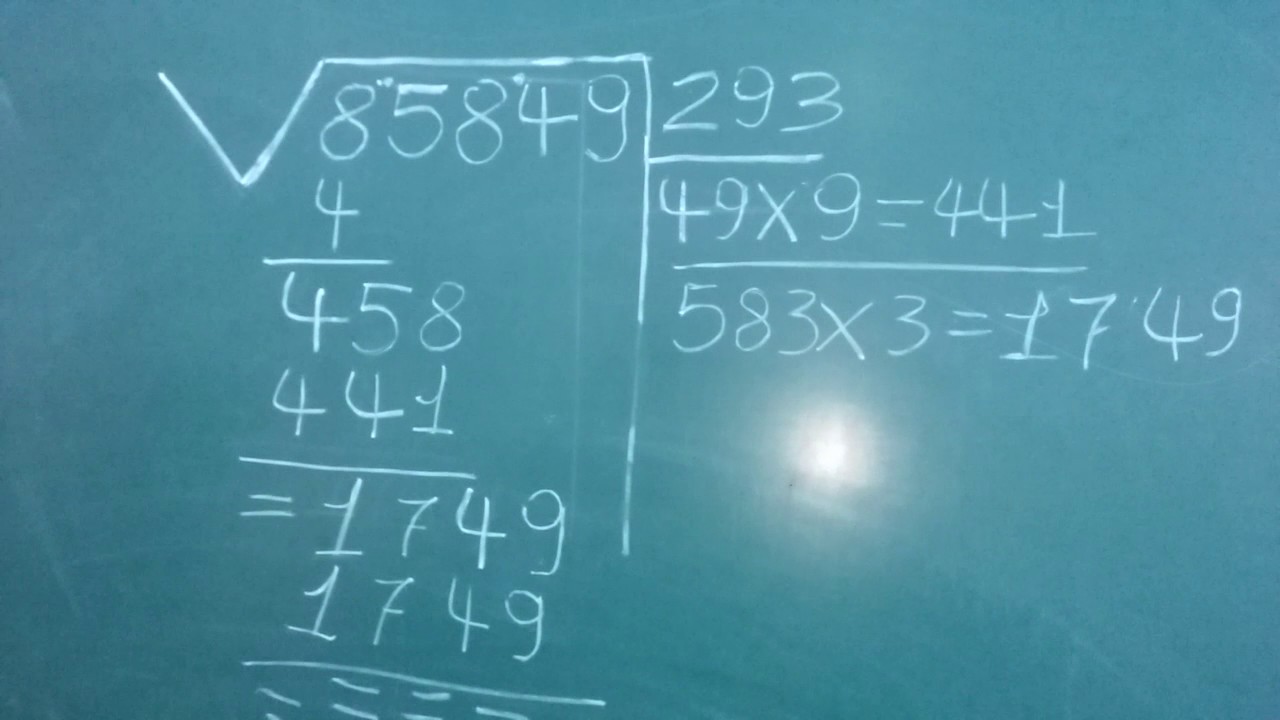 √85849 293
4 49×9=441
458 583×3=1749
441
=1749
1749
= = = =